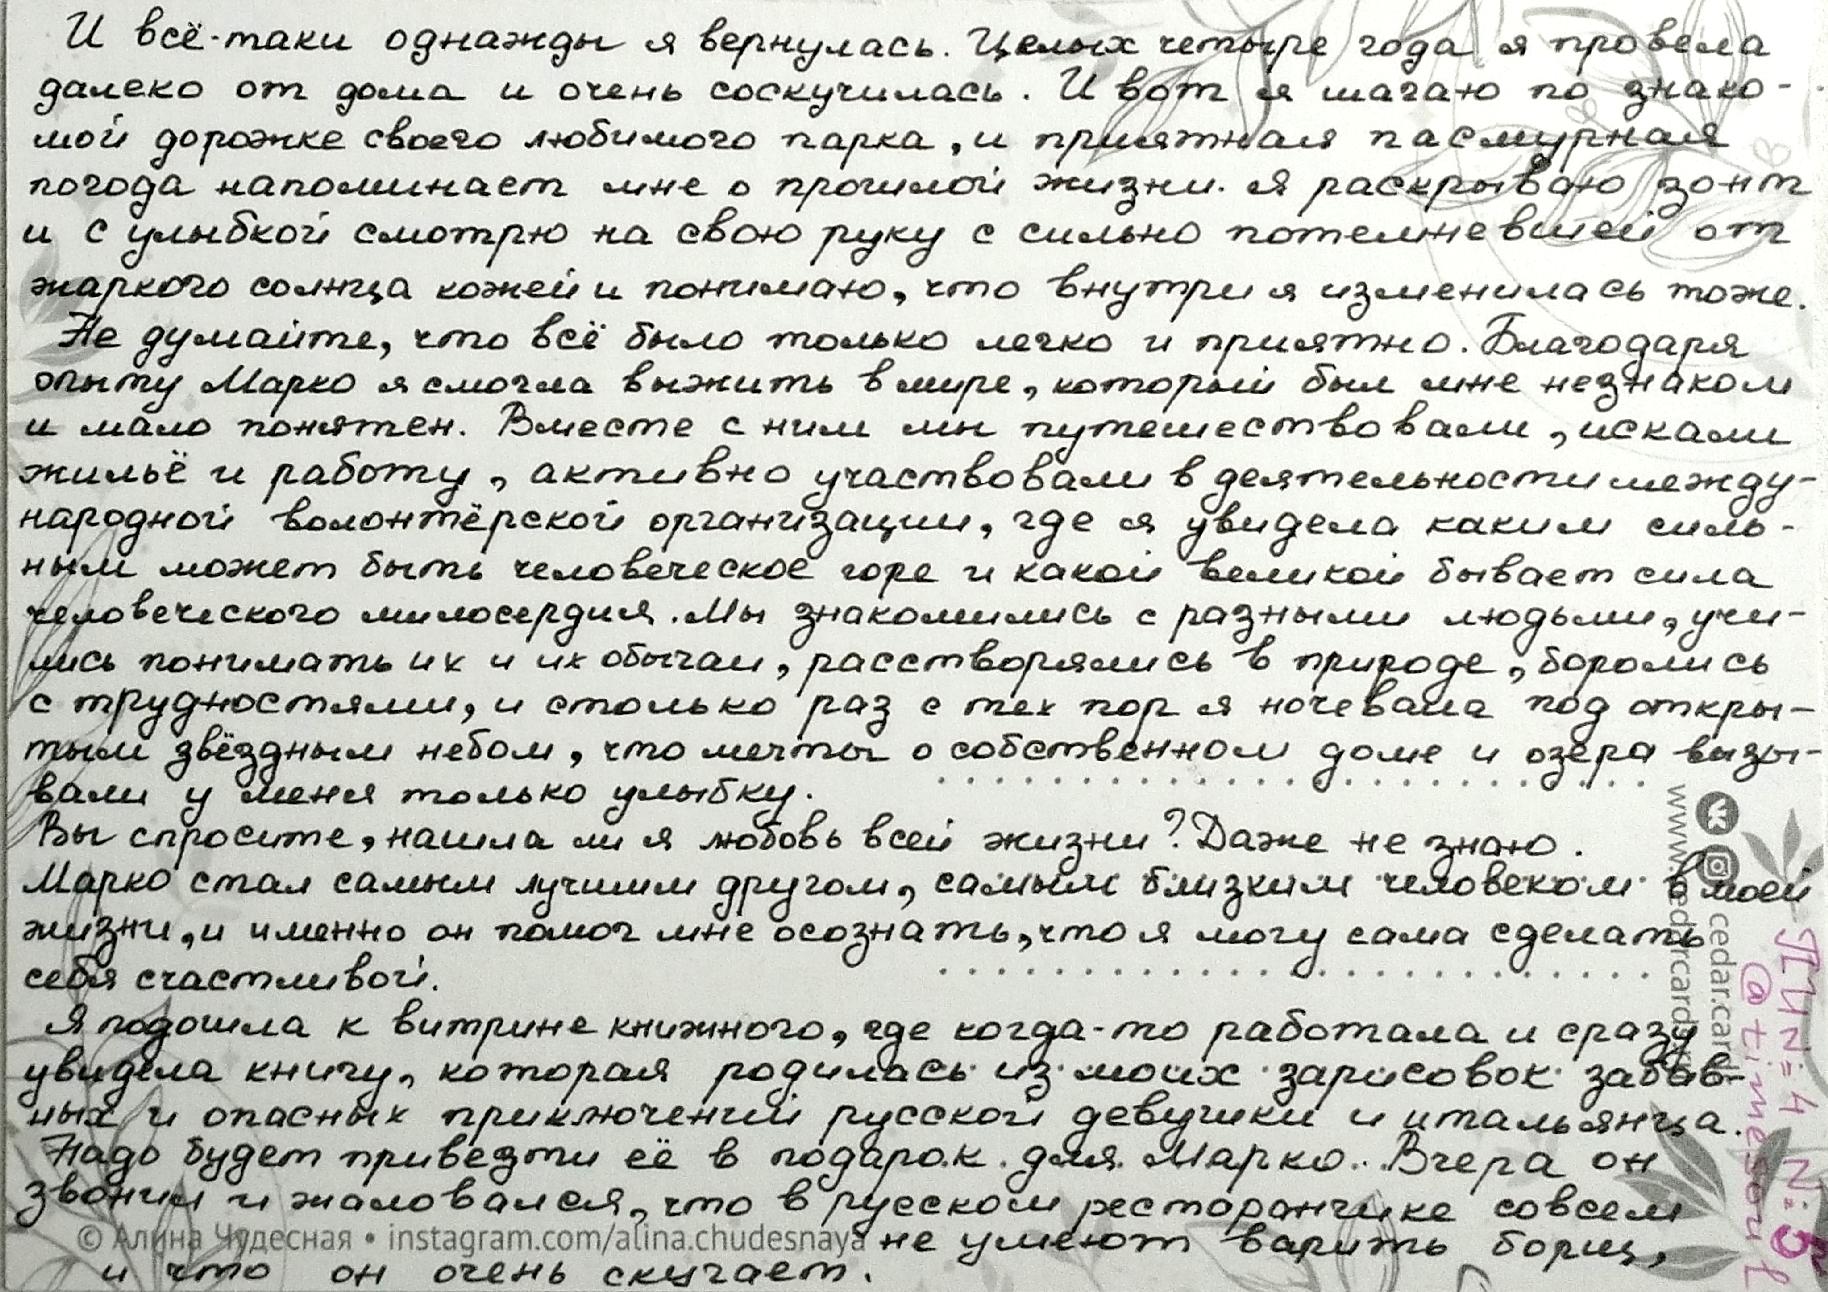 И всё-таки однажды я вернулась. Целых четыре года я провела
далеко от дома и очень соскучилась. И вот я шагаю по знако-
мой дорожке своего любимого парка, и приятная пасмурная
погода напоминает мне о прошлой жизни. Я раскрываю зонт
и с улыбкой смотрю на свою руку с сильно потемневшей от
жаркого солнца кожей и понимаю, что внутри я изменилась тоже.
Не думайте, что всё было только легко и приятно. Благодаря
опыту Марко я смогла выжить в мире, который был мне незнаком
и мало понятен. Вместе с ним мы путешествовали, искали
жильё и работу, активно участвовали в деятельности между-
народной волонтёрской организации, где я увидела каким силь-
ным может быть человеческое горе и какой великой бывает сила
человеческого милосердия. Мы знакомились с разными людьми, учи-
лись понимать их и их обычаи, расстворялись в природе, боролись
с трудностями, и столько раз с тех пор я ночевала под откры-
тым звёздным небом, что мечты о собственном доме и озера вызы-
вали у меня только улыбку.
Вы спросите, нашла ли я любовь всей жизни? Даже не знаю.
Марко стал самым лучшим другом, самым близким человеком в моей
жизни, и именно он помог мне осознать, что я могу сама сделать
себя счастливой.
Я подошла к витрине книжного, где когда-то работала и сразу
увидела книгу, которая родилась из моих зарисовок забав-
ных и опасных приключений русской девушки и итальянца.
Надо будет привезти её в подарок для Марко. Вчера он
звонил и жаловался, что в русском ресторанчике совсем
не умеют варить борщ,
и что он очень скучает.
© Алина Чудесная • instagram.com/alina.chudesnaya
cedar.cards
ПИN=4 N:5
@timesoul